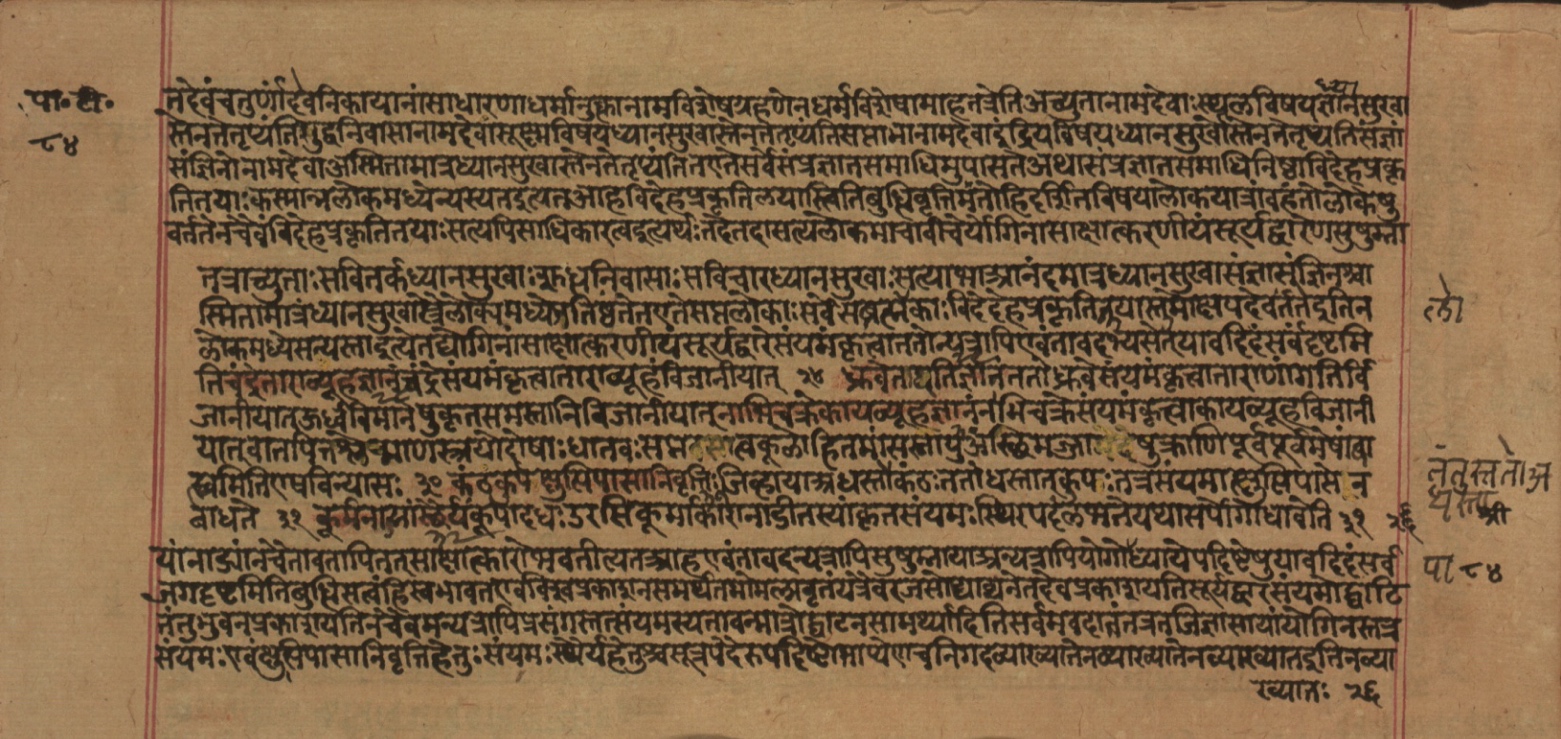 पा॰ टी॰
८४
तदेवंचतुर्णांदेवनिकायानांसाधारणाधर्मानुक्तानामविशेषग्रहणेनधर्मविशेषामाहतत्रेतिअच्युतानामदेवाःस्थूलविषयध्यानसुखा
स्तेनतेतृप्यंतिशुद्धनिवासानामदेवासूक्ष्मविषयध्यानसुखास्तेनतेतृप्यतिसत्याभानामदेवाइंद्रियविषयध्यानसुखास्तेनतेतृप्यतिसंज्ञा
संज्ञिनोनामदेवाअस्मितामात्रध्यानसुखास्तेनतेतृप्यंतितएतेसर्वेसंप्रज्ञातसमाधिमुपासतेअथासंप्रज्ञातसमाधिनिष्ठाविदेहप्रकृ
तितयाःकस्मान्नलोकमध्येन्यस्यतइत्यतआहविदेहप्रकृतिलयास्त्वितिबुद्धिवृत्तिमंतोहिदर्शितविषयालोकयात्रांवहंतोलोकेषु
वर्ततेनचैवंविदेहप्रकृतितयाःसत्यपिसाधिकारत्वइत्यर्थःतदेतदासत्यलोकमाचावीचेर्योगिनासाक्षात्करणीयंसूर्यद्वारेणसुषुम्ना
तत्राच्युताःसवितर्कध्यानसुखाःशुद्धनिवासाःसविचारध्यानसुखाःसत्याभाआनंदमात्रध्यानसुखासंज्ञासंज्ञिनआ
स्मितामात्रध्यानसुखास्त्रैलोक्यमध्येप्रतिष्ठंतेतएतेसप्तलोकाःसर्वेसब्रह्मलोकाःविदेहप्रकृतिलयास्तुमोक्षपदेवर्ततइतिन
लोकमध्येसन्यस्ताइत्येतद्योगिनांसाक्षात्करणीयंसूर्यद्वारेसंयमंकृत्वाततोन्यत्रापिएवंतावदभ्यसेत्यावदिदंसर्वंदृष्टमि
तिचंद्रेताराव्यूहज्ञानंचंद्रेसंयमंकृत्वाताराव्यूहंविजानीयात् २४ ध्रुवेतद्गतिज्ञानंततोध्रुवेसंयमंकृत्वाताराणांगतिंवि
जानीयात्ऊर्ध्वविमानेषुकृतसंयमस्तानिविजानीयात्नाभिचक्रेकायव्यूहज्ञानंनाभिचक्रेसंयमंकृत्वाकायव्यूहंविजानी
यात्वातपित्तश्लेष्माणस्त्रयोदोषाःधातवःसप्तत्वग्लोहितमांसस्नाय्वस्थिमज्जाशुक्राणिपूर्वंपूर्वमेषांबा
ह्यमितिएषविन्यासः ३० कंठकूपेक्षुत्पिपासानिवृत्तिःजिव्हायाअधस्तात्कंठःततोधस्तात्कूपःतत्रसंयमात्क्षुत्पिपासेन
बाधेते ३१ कूर्मनाड्यांस्थैर्यंकूपादधःउरसिकूर्माकारानाडीतस्यांकृतसंयमःस्थिरपदंलभतेयथासर्पोगोधावेति ३२ २६
यांनाड्यांनचैतावतापितत्साक्षात्कारोभवतीत्यतआहएवंतावदन्यत्रापिसुषुम्नायाअन्यत्रापियोगोपाध्यायोपदिष्टेषुयावदिदंसर्वं
जगदृष्टमितिबुद्धिसत्वंहिस्वभावतएवविश्वप्रकाशनसमर्थंतमोमलावृतंयत्रैवरजसोद्घाट्यतेतदेवप्रकाशयतिसूर्यद्वारसंयमोद्घाटि
तंतुभुवनंप्रकाशयतिनचैवमन्यत्रापिप्रसंगस्तत्संयमस्यतावन्मात्रोद्घाटनसामर्थ्यादितिसर्वमवदातंतत्रतत्रजिज्ञासायांयोगिनस्तत्र
संयमःएवंक्षुत्पिपासानिवृत्तिहेतुःसंयमःस्थैर्यहेतुश्चसूत्रपदैरुपदिष्टोभाष्येणचनिगदव्याख्यातेनव्याख्यातेनव्याख्यातइतिनव्या
ख्यातः २६
पा ८४